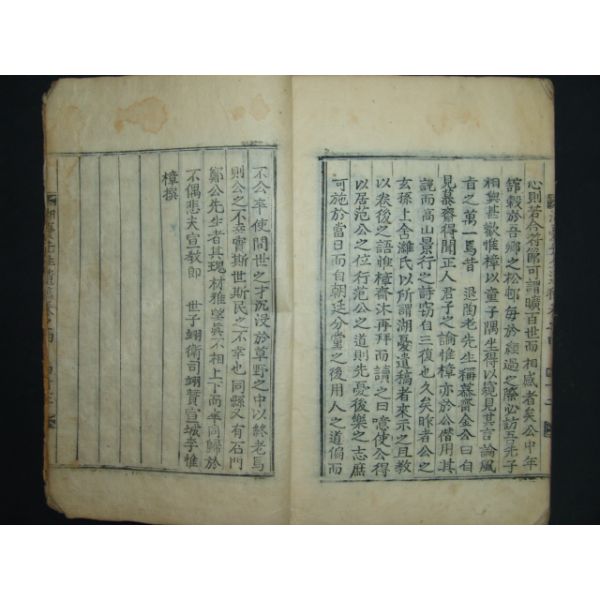 心則若合符節可謂曠百世而相感者矣公中年
館穀於吾鄉之松邨每於經過之際必訪吾先子
相與甚歡惟樟以童子隅坐得以窺見其言論風
旨之萬一焉昔 退陶老先生稱慕齋金公曰自
見慕齋得聞正人君子之論惟樟亦於公僭用其
說而高山景行之詩竊自三復也久矣昨者公之
玄孫上舍濰氏以所謂湖憂遺稿者來示之且敎
以卷後之語惟樟齋沐再拜而讀之曰噫使公得
以居范公之位行范公之道則先憂後樂之志庶
可施於當日而自朝廷分黨之後用人之道偏而
不公卒使間世之才沉浸於草野之中以終老焉
則公之不幸實斯世斯民之不幸也同縣又有石門
鄭公先生者其瑰材雅望眞不相上下而卒同歸於
不偶悲夫宣敎郞 世子翊衛司翊贊宣城李惟
樟撰